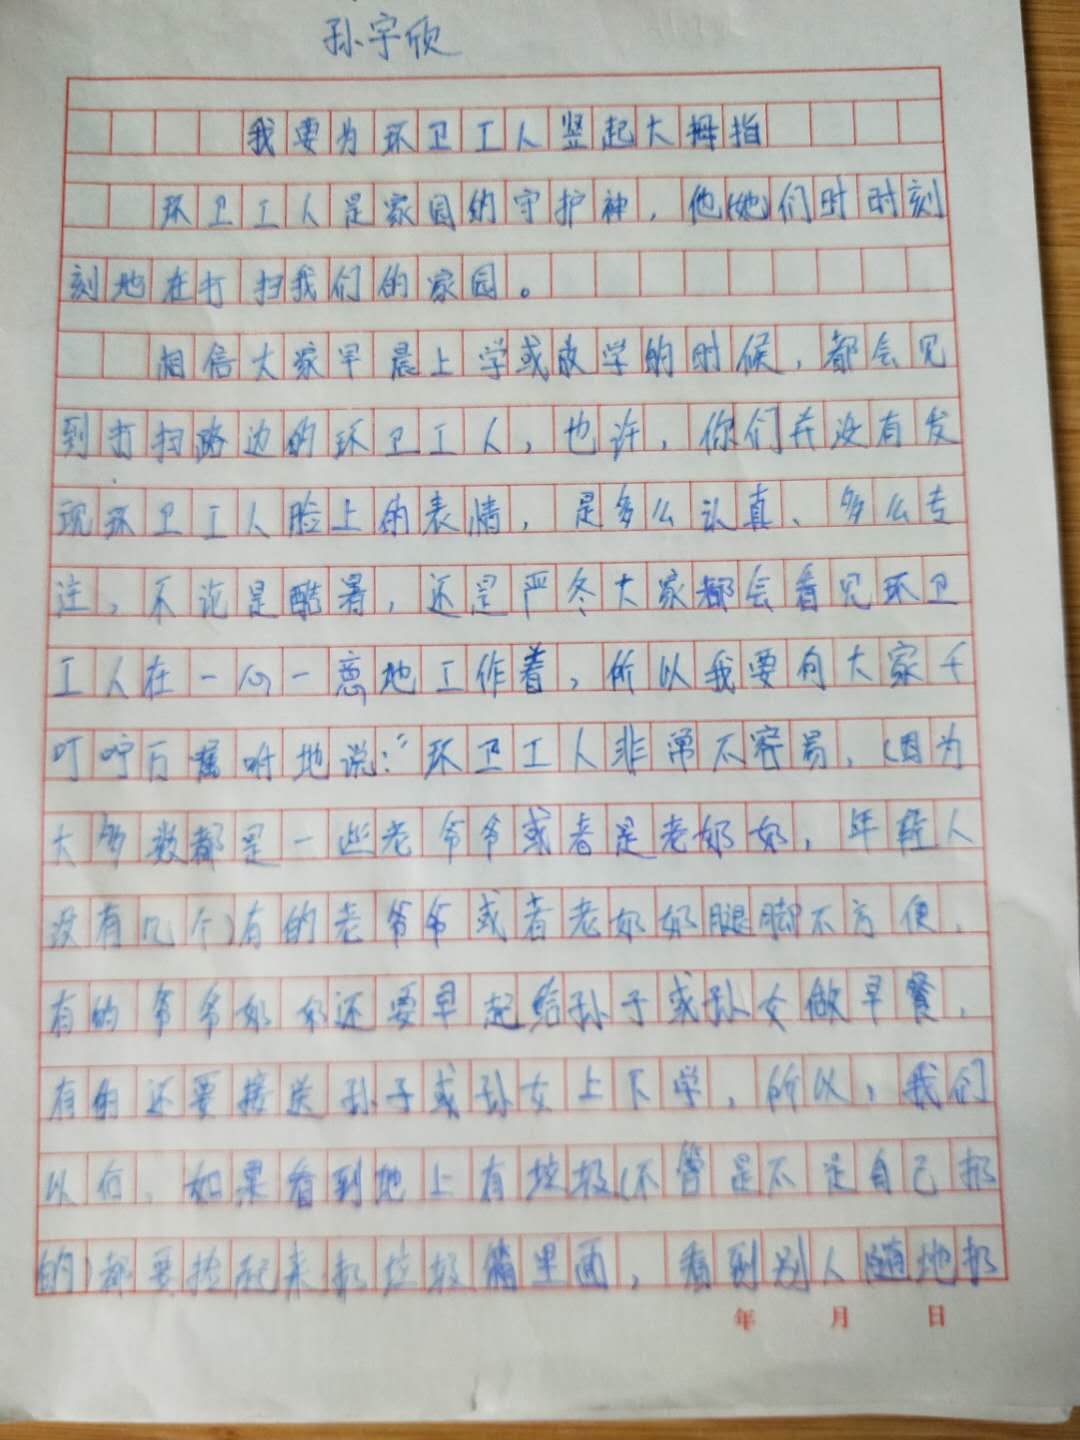 孙宇欣
我要为环卫工人竖起大拇指
环卫工人是家园的守护神，他(她)们时时刻
刻地在打扫我们的家园。
相信大家早晨上学或放学的时候，都会见
到打扫路边的环卫工人，也许，你们并没有发
现环卫工人脸上的表情，是多么认真、多么专
注，不论是酷暑，还是严冬大家都会看见环卫
工人在一心一意地工作着，所以我要向大家千
叮咛万嘱咐地说：“环卫工人非常不容易，(因为
大多数都是一些老爷爷或者是老奶奶，年轻人
没有几个)有的老爷爷或者老奶奶腿脚不方便，
有的爷爷奶奶还要早起给孙子或孙女做早餐，
有的还要接送孙子或孙女上下学，所以，我们
以后，如果看到地上有垃圾(不管是不是自己扔
的)都要捡起来扔垃圾桶里面，看到别人随地扔
年 月 日